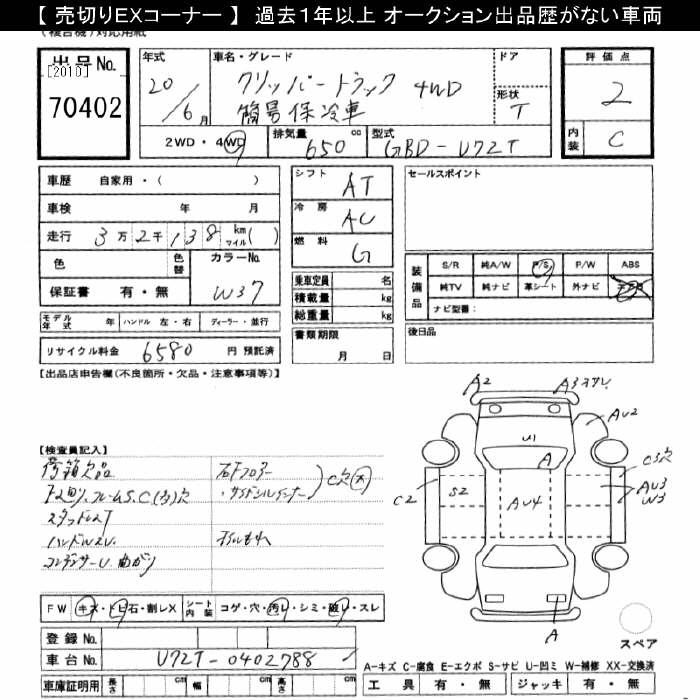 【 売切りEXコーナー 】 過去1年以上 オークション出品歴がない車両
(複合機)対応用紙
出品No.
[2010]
70402
年式
20/6月
車名・グレード
クリッパートラック 4WD
簡易保冷車
ドア
形状
T
評価点
2
内装
C
2WD・4WD
排気量
650 cc
型式
GBD-U72T
車歴 自家用・( )
車検 年 月
走行 3万2千138 km マイル( )
色
色替
カラーNo.
W37
保証書 有・無
モデル年式 年 ハンドル 左・右 ディーラー・並行
リサイクル料金 6580 円 預託済
シフト
AT
冷房
AC
燃料
G
乗車定員 名
積載量 kg
総重量 kg
書類期限
月 日
セールスポイント
装備品
S/R 純A/W P/S P/W ABS
純TV 純ナビ 革シート 外ナビ
ナビ型番:
後日品
【出品店申告欄(不良箇所・欠品・注意事項等)】
【検査員記入】
荷箱欠品
下廻り、フレームS.C(3)穴
スタッドレスT
ハンドルスレ
コンデンサーU 曲がり
右Fフロアー
・サイドシルインナー
C穴(大)
オイルもれ
A2
A3スリレ
AU2
U1
A
C3穴
AU3
W3
C2
S2
AU4
A
FW キズ・トビ石・割レX シート内装 コゲ・穴・汚レ・シミ・破レ・スレ
登録No.
車台No. U72T-0402788
車庫証明用 長さ cm 幅 cm 高さ cm
スペア
A-キズ C-腐食 E-エクボ S-サビ U-凹ミ W-補修 XX-交換済
工具 有・無 ジャッキ 有・無